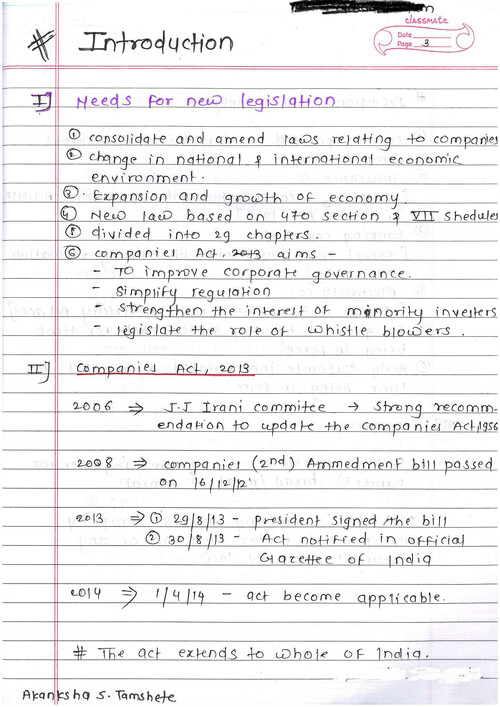 classmate
Date
Page 3
# Introduction
I] Needs for new legislation
① consolidate and amend laws relating to companies
② change in national & international economic
environment.
③. Expansion and growth of economy.
④ New law based on 470 section & VII Shedules
⑤ divided into 29 chapters.
⑥ companies Act, 2013 aims -
- To improve corporate governance.
- Simplify regulation
- strengthen the interest of minority investers
- legislate the role of whistle blowers.
II] Companies Act, 2013
2006 ⇒ J.J Irani commitee → Strong recomm-
endation to update the companies Act,1956
2008 ⇒ companies (2nd) Ammedment bill passed
on 16/12/12
2013 ⇒ ① 29/8/13 - president signed the bill
② 30/8/13 - Act notified in official
Gazettee of India
2014 ⇒ 1/4/14 - act become applicable.
# The act extends to whole of India.
Akanksha S. Tamshete